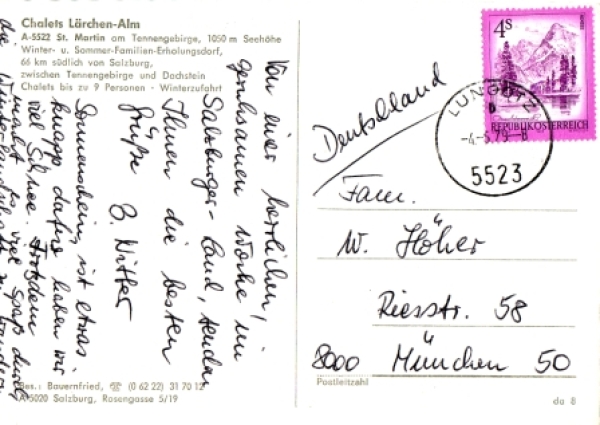 Chalets Lärchen-Alm
A-5522 St. Martin am Tennengebirge, 1050 m Seehöhe
Winter- u. Sommer-Familien-Erholungsdorf,
66 km südlich von Salzburg,
zwischen Tennengebirge und Dachstein
Chalets bis zu 9 Personen - Winterzufahrt
Von einer herrlichen,
geruhsamen Woche im
Salzburger-Land, senden
Ihnen die besten
Grüße
Sonnenschein, ist etwas
knapp dafür haben wir
viel Schnee. Trotzdem
macht es viel Spaß durch
die Winterlandschaft zu wandern
Bes.: Bauernfried, ☏ (0 62 22) 31 70 12
A-5020 Salzburg, Rosengasse 5/19
4S
REPUBLIK ÖSTERREICH
LUNGÖTZ
b
-4.-5.79-8
5523
Deutschland
Fam.
W. Höher
Riesstr. 58
8000 München 50
Postleitzahl
do 8